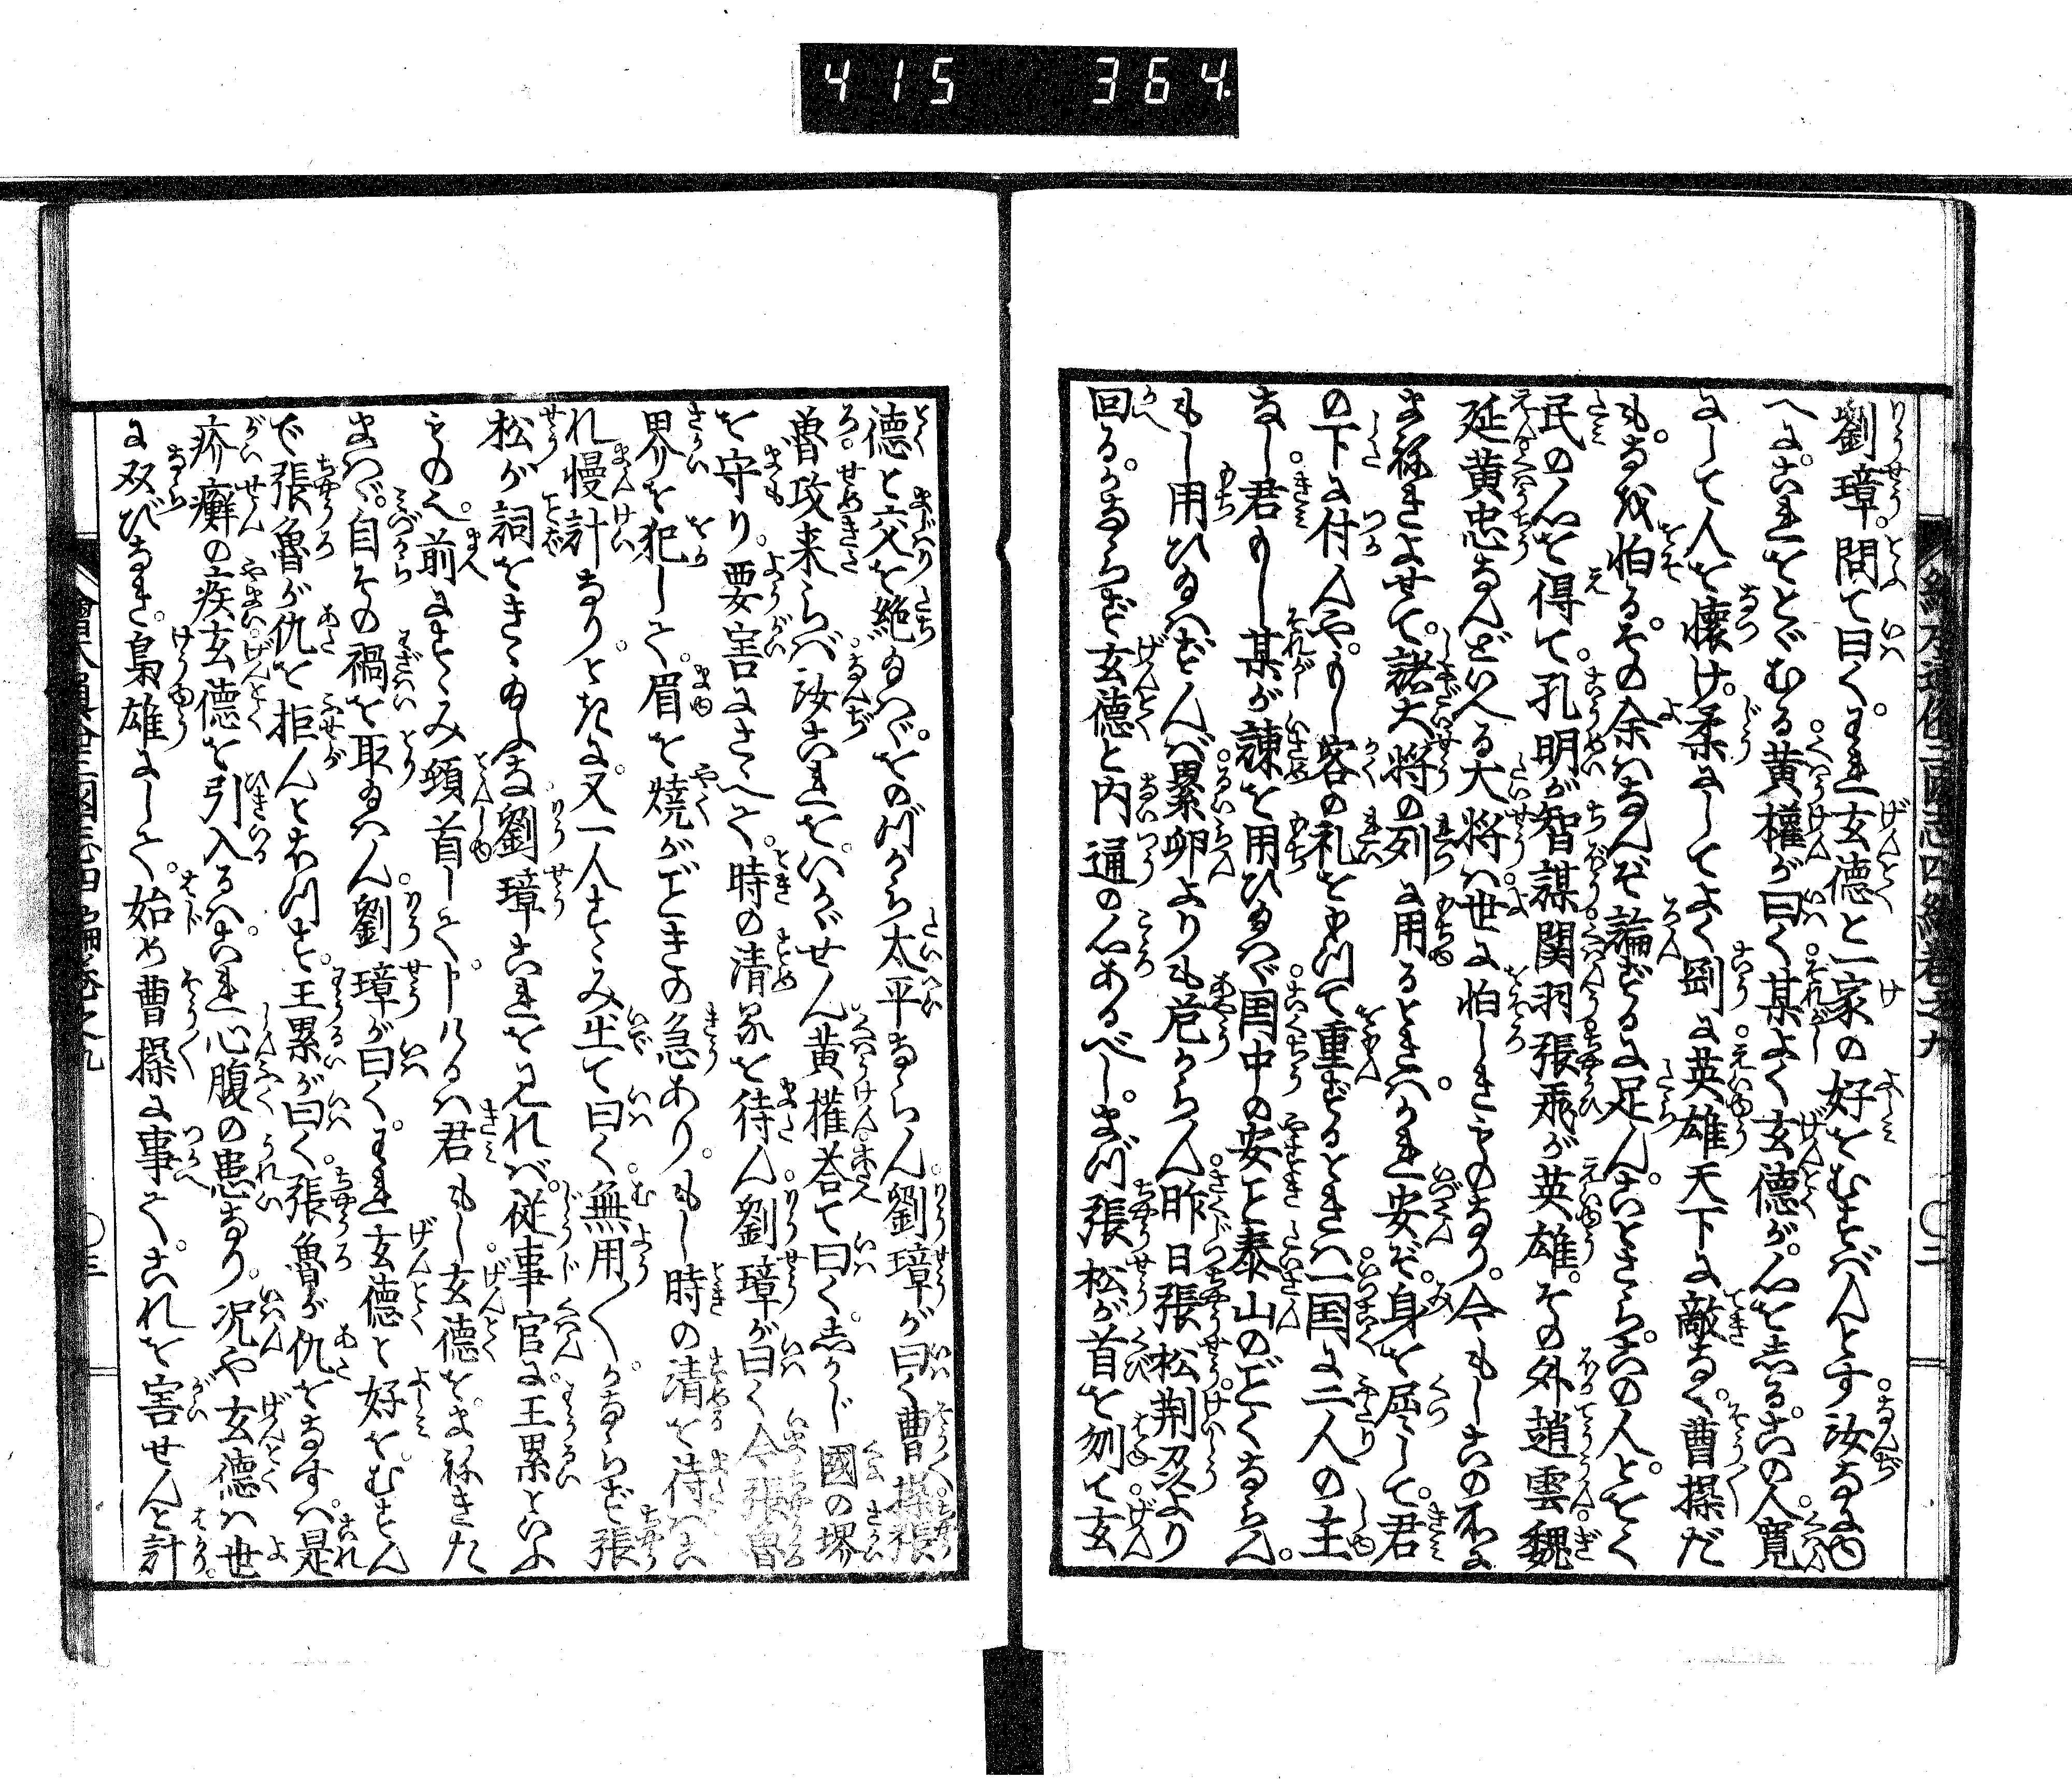 415 364
劉璋問て曰く。われ玄徳と一家の好をむすバんとす汝なにゆ
へにこれをとゞむる黄權が曰く某よく玄徳が心をしるこの人寛
にして人を懐け。柔にしてよく剛に英雄天下に敵なく。曹操だ
も。なを怕る。その余ハなんぞ論ずるに足ん。ことさらこの人とをく
民の心を得て。孔明が智謀関羽張飛が英雄。その外趙雲魏
延黄忠なんどいへる大将ハ世に怕しきものなり。今もしこの和に
まねきよせて。諸大将の列に用るときハ。かれ安ぞ。身を屈して。君
の下に付んや。もし客の礼をもつて重ずるときハ一国に二人の主
なし君もし某が諫を用ひ給ハゞ国中の安と泰山のごとくならん。
もし用ひ給ハずんバ累卵よりも危からん昨日張松荆州より
回る。かならず玄徳と内通の心あるべし。まづ張松が首を刎て玄
徳と交を絶給ハゞ。をのづから太平ならん劉璋が曰く曹操張
魯攻来らバ汝これをいかゞせん黄權荅て曰く。しかじ國の堺
を守り。要害にさゝへて。時の清ふを待ん劉璋が曰く今張魯
界を犯して。眉を燒がごときの急あり。もし時の清を待ハこ
れ慢計なりときに又一人すゝみ出て曰く無用〳〵かならず張
松が詞をきゝ給ふな劉璋これを見れバ。従事官に王累といふ
もの也。前にすゝみ頓首して申けるハ君もし玄徳をまねきた
まハゞ。自その禍を取給ハん劉璋が曰く。われ玄徳と好をむすん
で張魯が仇を拒んとおもふ。王累が曰く。張魯が仇をなすハ是
疥癬の疾玄徳を引入るハ。これ心腹の患なり。况や玄徳ハ世
に双びなき。梟雄にして。始め曹操に事て。これを害せんと計
繪本通俗三國志四編巻之九
〇二
繪本通俗三國志四編巻之九
〇三